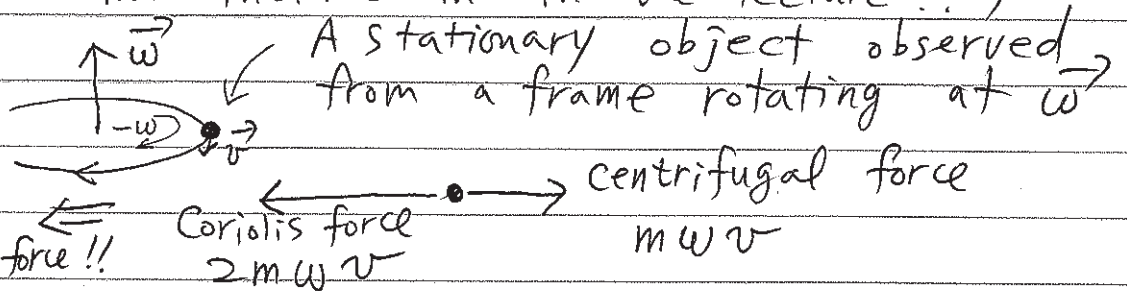 A stationary object observed
from a frame rotating at ω⃗
ω⃗
-ω
v⃗
centrifugal force
mωv
Coriolis force
2mωv
force!!